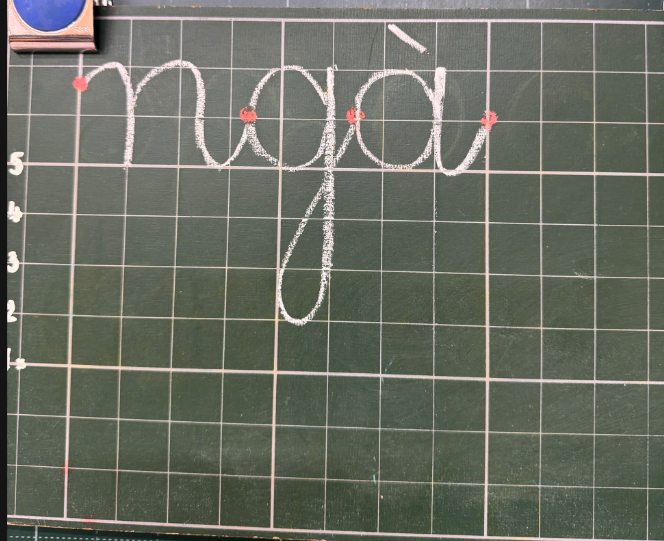 ngà
5
4
3
2
1